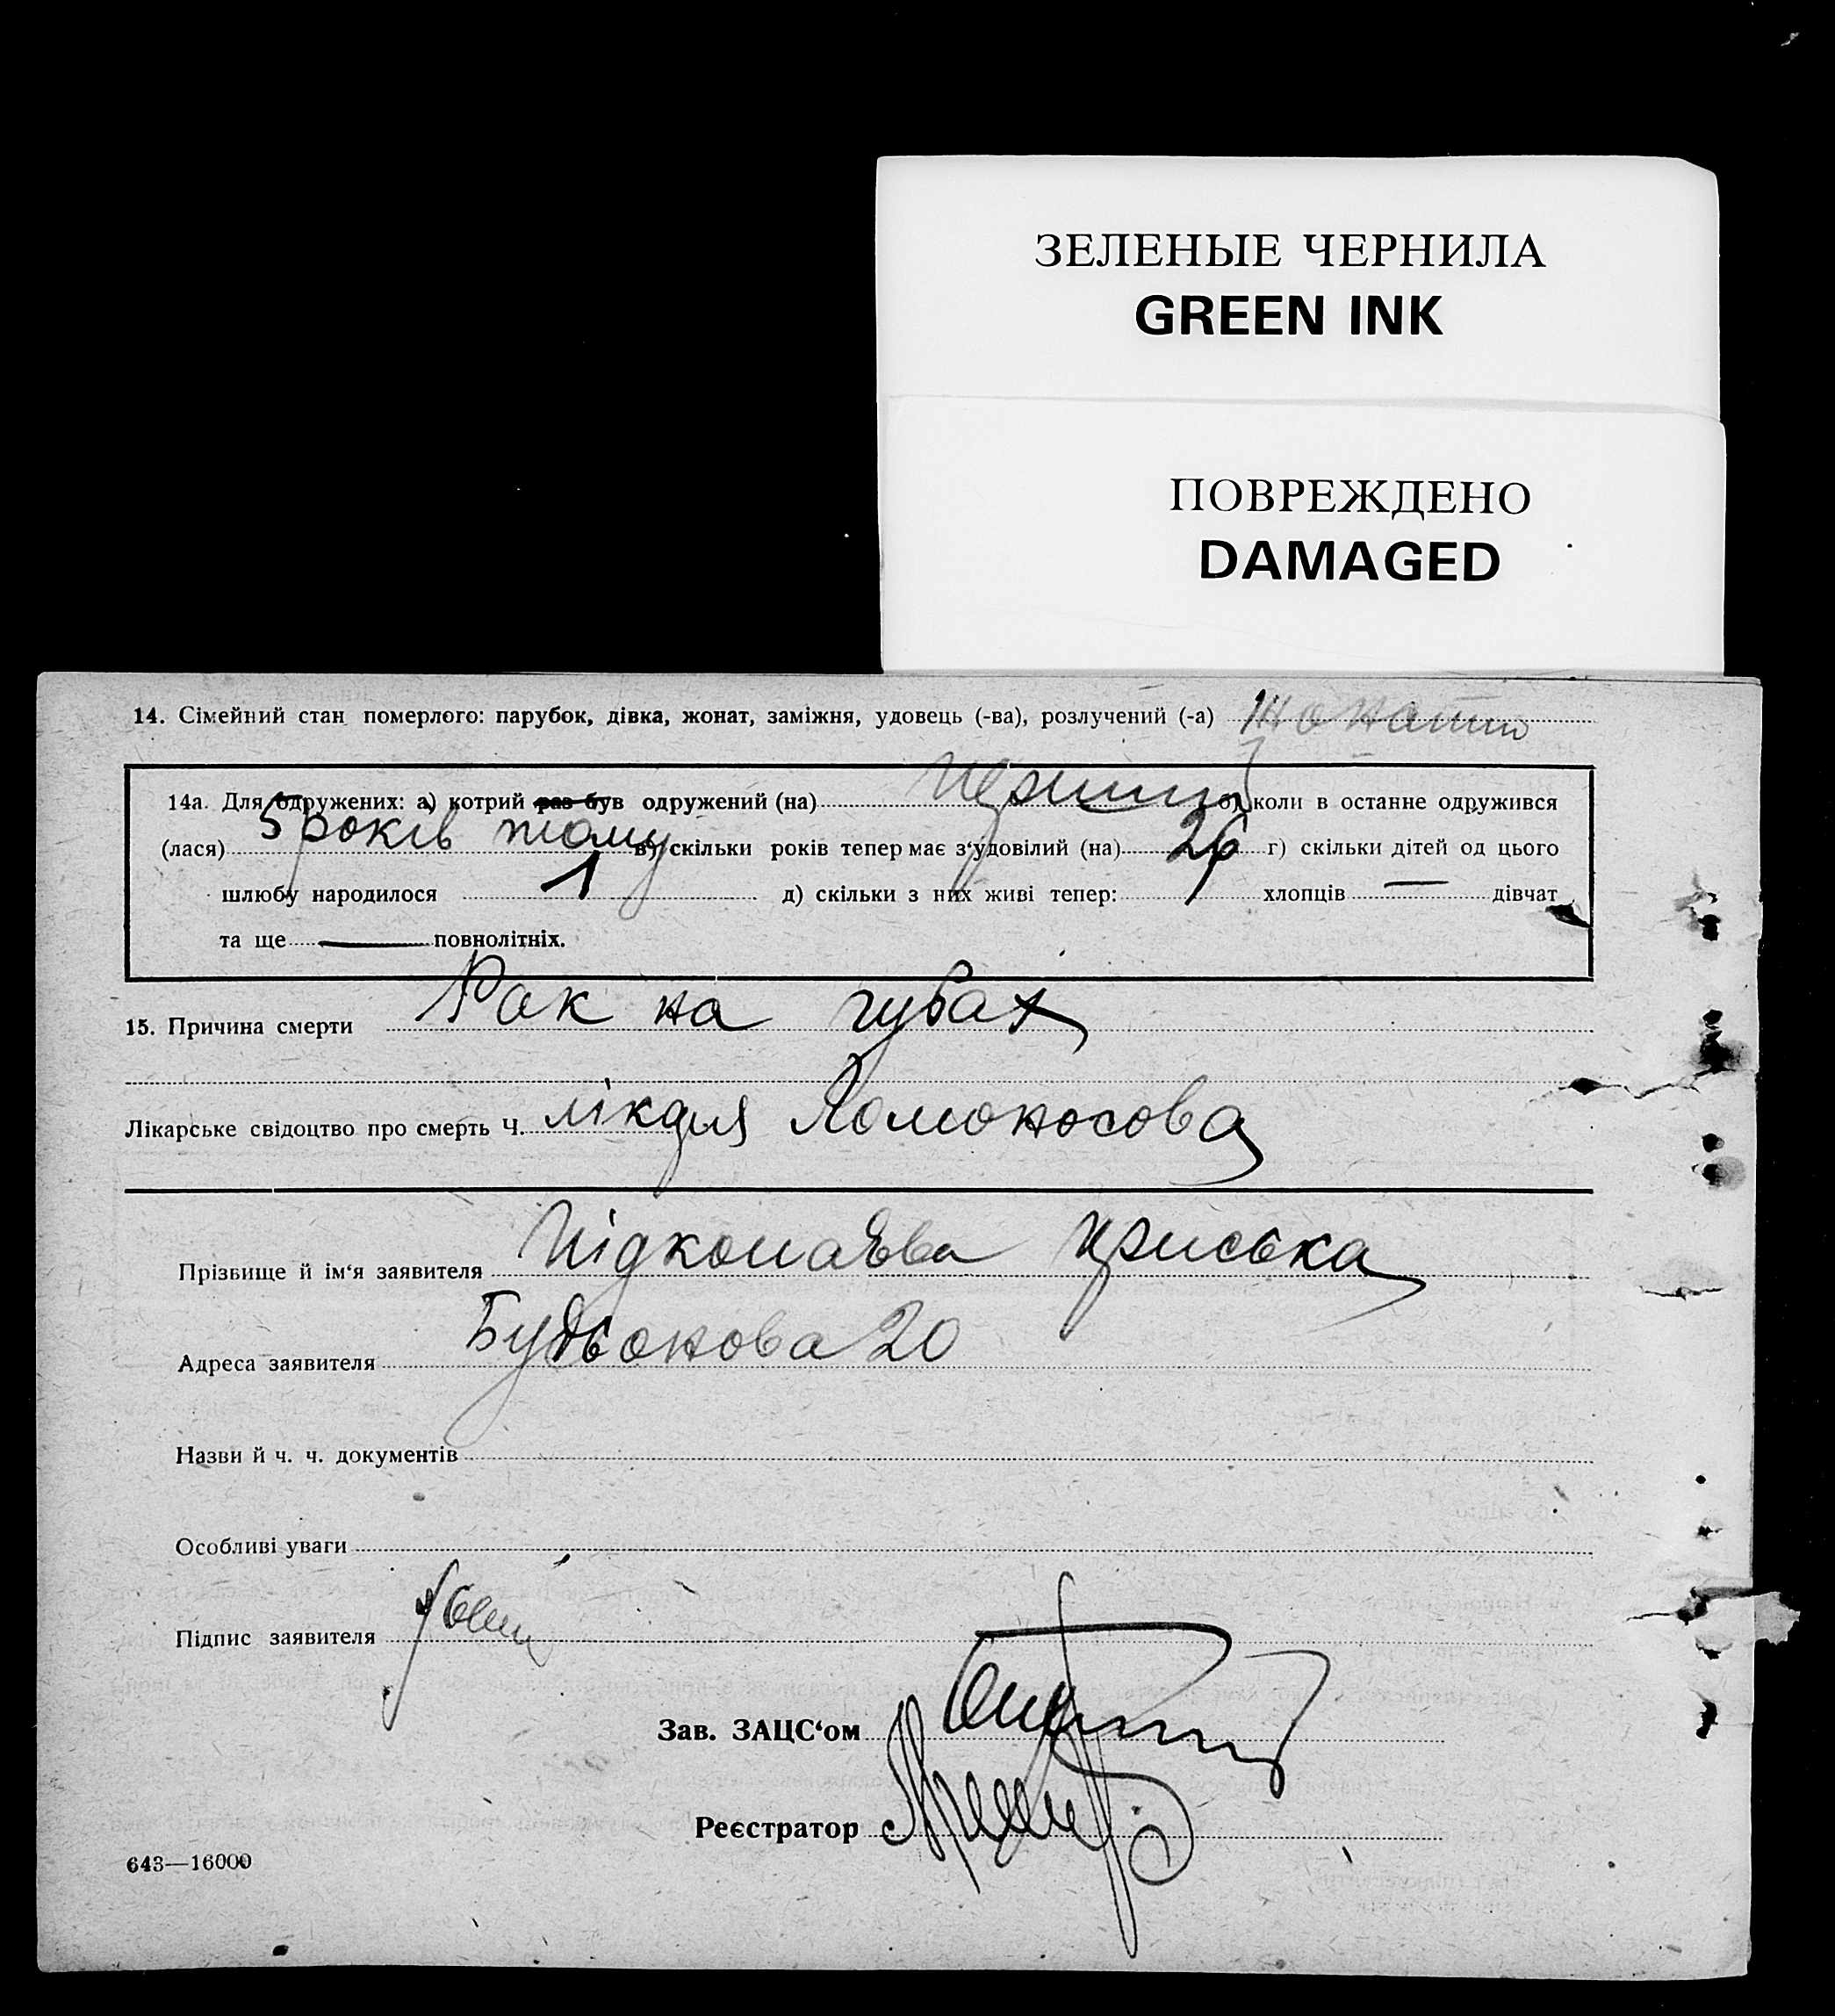 ЗЕЛЕНЫЕ ЧЕРНИЛА
GREEN INK
ПОВРЕЖДЕНО
DAMAGED
14. Сімейний стан померлого: парубок, дівка, жонат, заміжня, удовець (-ва), розлучений (-а) жонатий
14а. Для одружених: а) котрий раз був одружений (на) перший б) коли в останне одружився
(лася) 5 років тому в) скільки років тепер має з'удовілий (на) 26 г) скільки дітей од цього
шлюбу народилося 1 д) скільки з них живі тепер: 1 хлопців — дівчат
та ще — повнолітніх.
15. Причина смерти Рак на губах
Лікарське свідоцтво про смерть Ч. Ломоносова
Прізвище й ім'я заявителя Підкопаєва Приська
Адреса заявителя Будьонова 20
Назви й ч. ч. документів
Особливі уваги
Підпис заявителя
Зав. ЗАЦС'ом
Реєстратор
643—16000